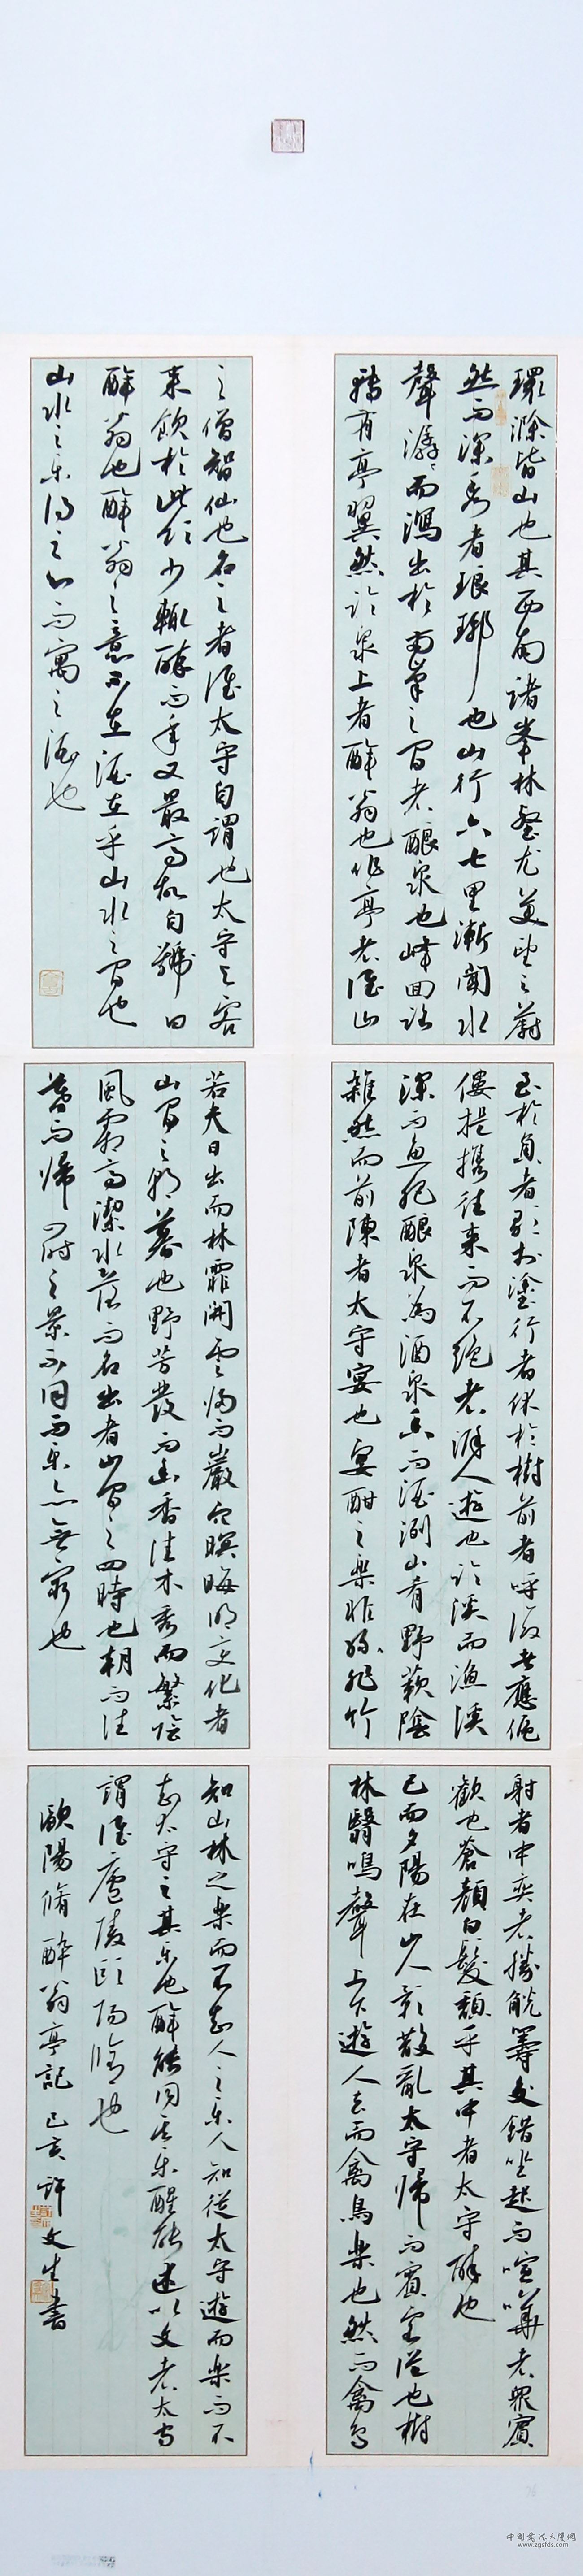 環滁皆山也其西南諸峯林壑尤美望之蔚
然而深秀者琅琊也山行六七里漸聞水
聲潺潺而瀉出於兩峯之間者釀泉也峰回路
轉有亭翼然臨泉上者醉翁也作亭者誰山
之僧智仙也名之者誰太守自謂也太守与客
来飲於此飲少輒醉而年又最高故自號曰
醉翁也醉翁之意不在酒在乎山水之間也
山水之樂得之心而寓之酒也
若夫日出而林霏開雲歸而巖穴暝晦明变化者
山間之朝暮也野芳發而幽香佳木秀而繁陰
風霜高潔水落而石出者山間之四時也朝而往
暮而歸四時之景不同而樂亦無窮也
至於負者歌於塗行者休於樹前者呼後者應傴
僂提攜往来而不絶者滁人遊也臨溪而漁溪
深而魚肥釀泉為酒泉香而酒洌山肴野蔌
雜然而前陳者太守宴也宴酣之樂非絲非竹
射者中奕者勝觥籌交錯坐起而喧嘩者眾賓
歡也蒼顏白髮頹乎其中者太守醉也
已而夕陽在山人影散亂太守歸而賓客從也樹
林翳鳴聲上下遊人去而禽鳥樂也然而禽鳥
知山林之樂而不知人之樂人知從太守遊而樂而不
知太守之其樂也醉能同其樂醒能述以文者太守
謂誰廬陵歐陽脩也
歐陽脩醉翁亭記 己亥 許文生書
中国書法大厦網
www.zgsfds.com